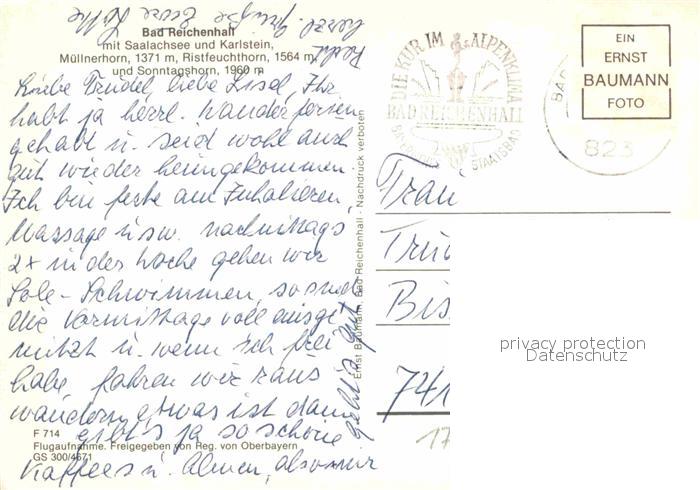 Bad Reichenhall
mit Saalachsee und Karlstein,
Müllnerhorn, 1371 m, Ristfeuchthorn, 1564 m
und Sonntagshorn, 1960 m
Liebe Trudel, liebe Lisel, Ihr
habt ja herrl. Wanderferien
gehabt u. seid wohl auch
gut wieder heimgekommen.
Ich bin feste am Inhalieren,
Massage usw. nachmittags
2x in der Woche gehen wir
Sole-Schwimmen, so sind
die Vormittage voll ausge
nützt u. wenn ich frei
habe fahren wir raus
wandern, etwas ist dann
gibt's ja so schöne
Kaffees u. Almen, also mir
geht's gut
Recht herzl. Grüße Eure Lotte
F 714
Flugaufnahme. Freigegeben von Reg. von Oberbayern
GS 300/4671
Ernst Baumann, Bad Reichenhall - Nachdruck verboten
DIE KUR IM ALPENKLIMA
BAD REICHENHALL
BAYERISCHES STAATSBAD
BAD
823
EIN
ERNST
BAUMANN
FOTO
Frau
Tru
Bis
741
17
privacy protection
Datenschutz